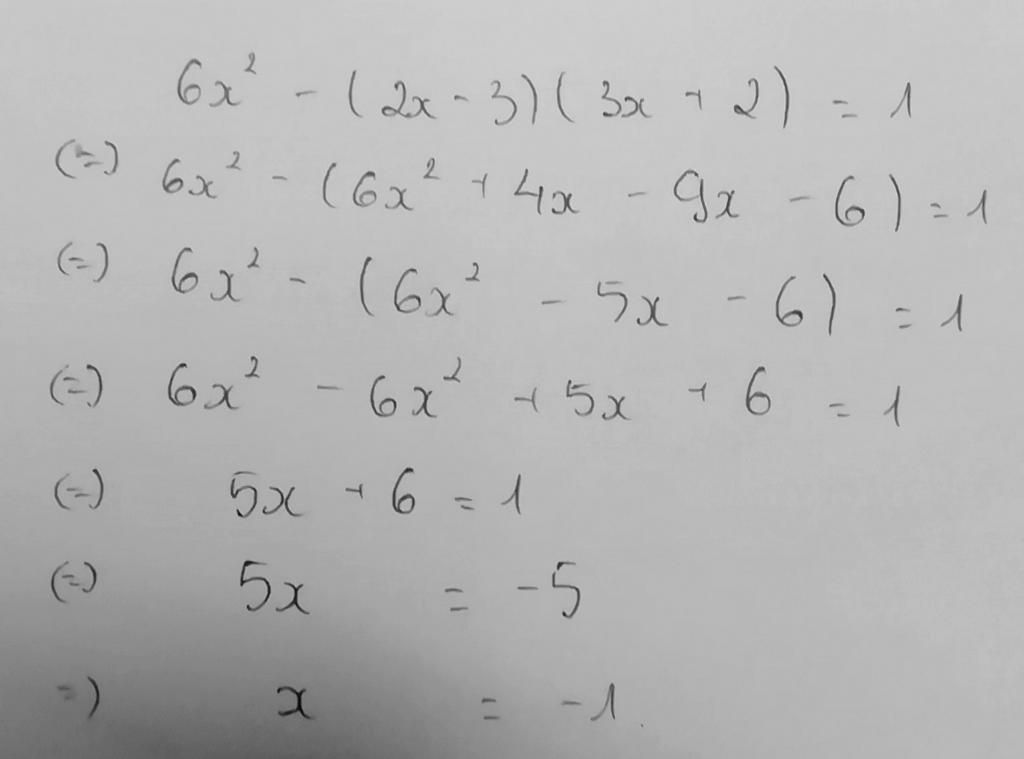 6x² - (2x - 3)(3x + 2) = 1
(=) 6x² - (6x² + 4x - 9x - 6) = 1
(=) 6x² - (6x² - 5x - 6) = 1
(=) 6x² - 6x² + 5x + 6 = 1
(=) 5x + 6 = 1
(=) 5x = -5
=) x = -1.